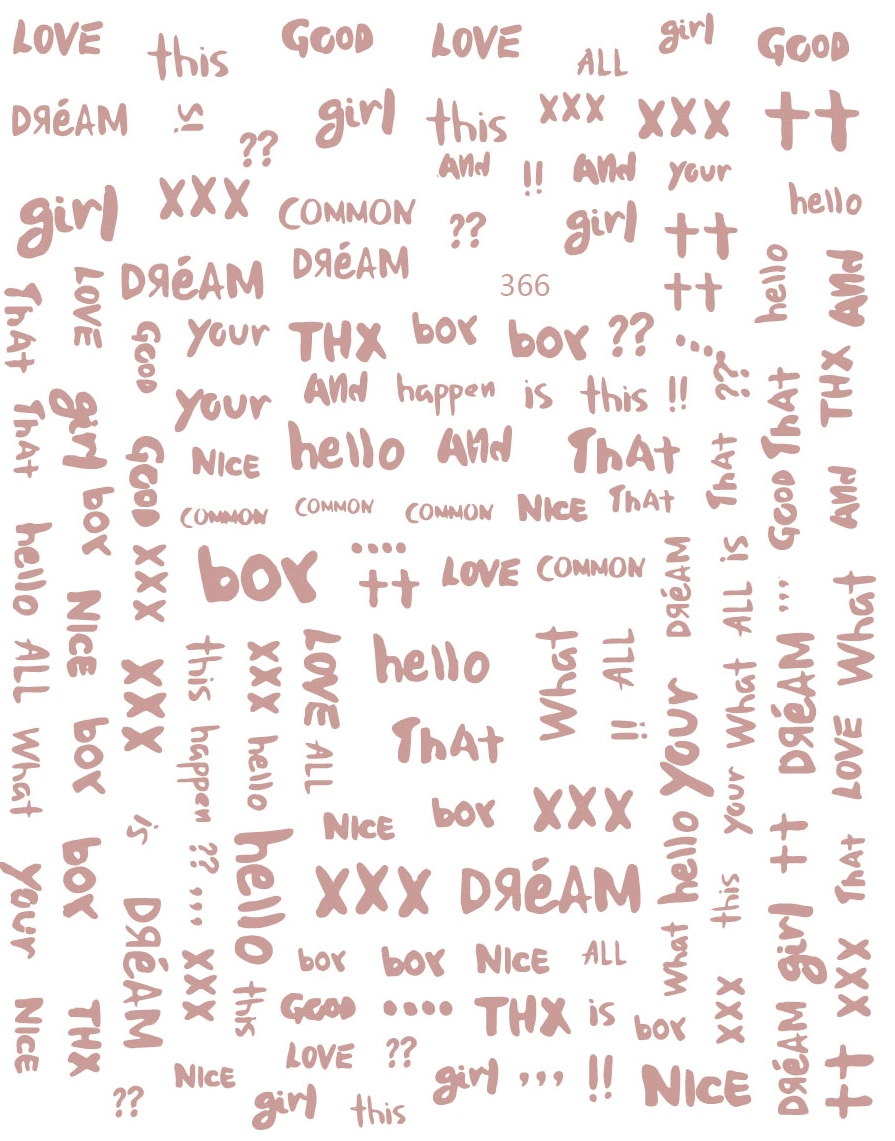 LOVE this GOOD LOVE ALL girl GOOD
DЯéAM is ?? girl this XXX XXX ++
girl XXX COMMON And !! And your hello
DЯéAM DЯéAM ?? girl ++
366 ++ hello And
ThAT LOVE GOOD your THX boy boy ?? ....
your And happen is this !! ?? ThAT THX
ThAT girl GOOD NICE hello And ThAT ThAT GOOD And
boy COMMON COMMON COMMON NICE ThAT
hello NICE XXX boy .... ++ LOVE COMMON DЯéAM ALL is ,,,
ALL XXX this XXX LOVE hello What ALL What DЯéAM What
What boy happen hello ALL ThAT !! your your LOVE
is NICE boy XXX hello ++
your boy ?? hello XXX DЯéAM this ThAT
DЯéAM ,,, XXX boy boy NICE ALL What girl XXX
NICE THX this GOOD .... THX is boy XXX DЯéAM ++
LOVE ??
?? NICE girl this girl ,,, !! NICE